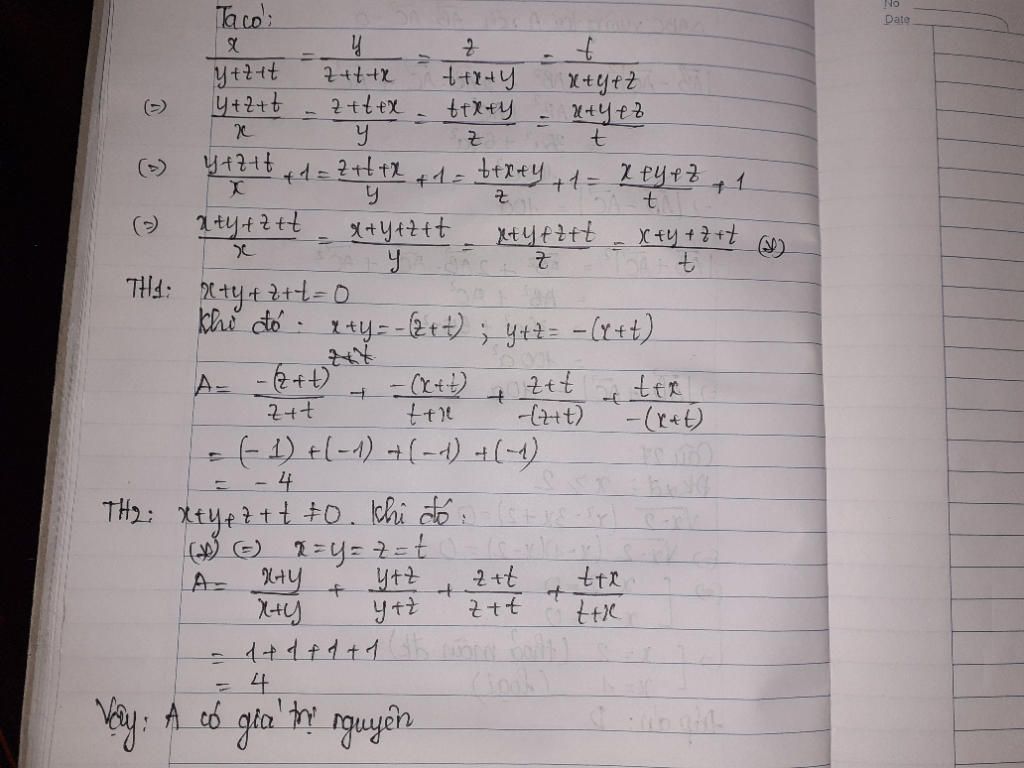 No
Date
Ta có:
x/(y+z+t) = y/(z+t+x) = z/(t+x+y) = t/(x+y+z)
(=) (y+z+t)/x = (z+t+x)/y = (t+x+y)/z = (x+y+z)/t
(=) (y+z+t)/x + 1 = (z+t+x)/y + 1 = (t+x+y)/z + 1 = (x+y+z)/t + 1
(=) (x+y+z+t)/x = (x+y+z+t)/y = (x+y+z+t)/z = (x+y+z+t)/t (*)
TH1: x+y+z+t=0
Khi đó: x+y=-(z+t); y+z=-(x+t)
z+t
A= -(z+t)/(z+t) + -(x+t)/(t+x) + (z+t)/-(z+t) + (t+x)/-(x+t)
= (-1)+(-1)+(-1)+(-1)
= -4
TH2: x+y+z+t≠0. Khi đó:
(*) (=) x=y=z=t
A= (x+y)/(x+y) + (y+z)/(y+z) + (z+t)/(z+t) + (t+x)/(t+x)
= 1+1+1+1
= 4
Vậy: A có giá trị nguyên